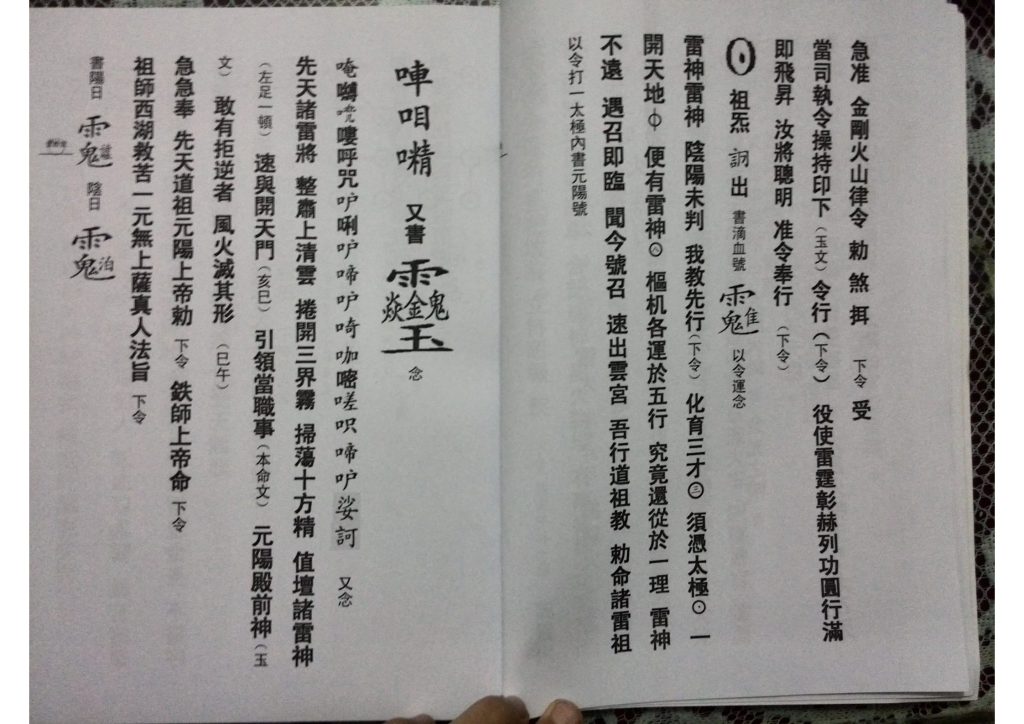 急准 金剛火山律令 勅 煞 挕 下令 受
當司執令操持印下(玉文)令行(下令) 役使雷霆彰赫列功圓行滿
即飛昇 汝將聰明 准令奉行 (下令)
祖炁 出 書滴血號 以令運念
雷神雷神 陰陽未判 我教先行(下令) 化育三才 須憑太極⊙ 一
開天地 便有雷神 樞机各運於五行 究竟還從於一理 雷神
不遠 遇召即臨 聞今號召 速出雲宮 吾行道祖教 勅命諸雷祖
以令打一太極內書元陽號
唓 呾 又書 念
唵 嘍呼咒 唎 啼 啼 娑訶 又念
先天諸雷將 整肅上清雲 捲開三界霧 掃蕩十方精 值壇諸雷神
(左足一頓) 速與開天門(亥巳) 引領當職事(本命文) 元陽殿前神(玉
文) 敢有拒逆者 風火滅其形 (巳午)
急急奉 先天道祖元陽上帝勅 下令 鉄師上帝命 下令
祖師西湖救苦一元無上薩真人法旨 下令
書陽日 陰日